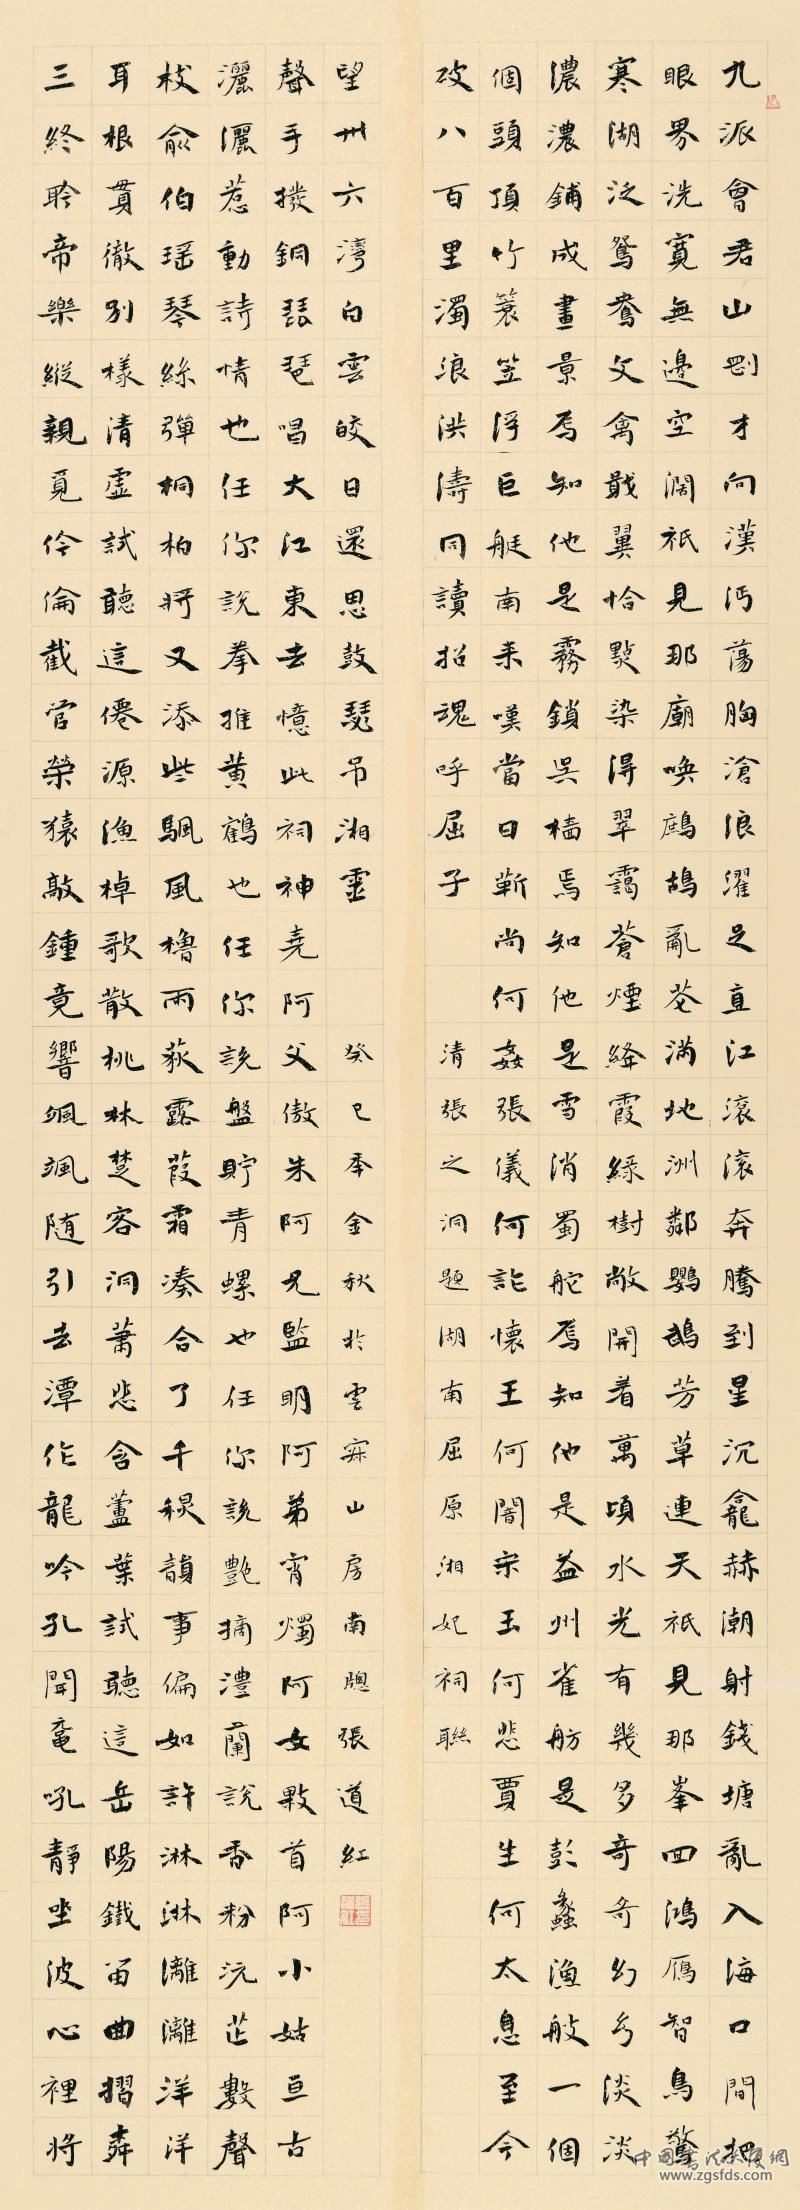 九派會君山剛才向漢沔蕩胸滄浪濯足直江滾滾奔騰到星沉龕赫潮射錢塘亂入海口間把
眼界洗寬無邊空闊祇見那廟喚鷓鴣亂花滿地洲鄰鸚鵡芳草連天祇見那峯回鴻雁智鳥驚
寒湖泛鴛鴦文禽戢翼恰點染得翠靄蒼煙絳霞綠樹敞開着萬頃水光有幾多奇奇幻幻淡淡
濃濃鋪成畫景焉知他是霧鎖吳檣焉知他是雪消蜀舵焉知他是益州雀舫是彭蠡漁艘一個
個頭頂竹蓑笠浮巨艇南來嘆當日靳尚何姦張儀何詐懷王何闇宋玉何悲賈生何太息至今
破八百里濁浪洪濤同讀招魂呼屈子
清張之洞題湖南屈原湘妃祠聯
三終聆帝樂縱親覓伶倫截管榮猿敲鍾竟響颯颯随引去潭作龍吟孔聞鼉吼靜坐波心裡將
耳根貫徹別樣清虛試聽這僊源漁棹歌散桃林楚客洞蕭悲含蘆葉試聽這岳陽鐵笛曲摺
枝俞伯瑤琴絲彈桐柏將又添些颿風櫓雨荻露葭霜湊合了千般韻事偏如許淋淋漓漓洋洋
灑灑惹動詩情也任你說拳推黃鶴也任你說盤貯青螺也任你說艷摘澧蘭說香粉沅芷數聲
聲手撥銅琵琶唱大江東去憶此祠神堯阿父傲朱阿兄監明阿弟宵燭阿女敤首阿小姑亘古
望卅六灣白雲皎日還思鼓瑟吊湘靈
癸巳年金秋於雲寐山房南牕張道紅
中國書法家展網
www.zgsfds.com